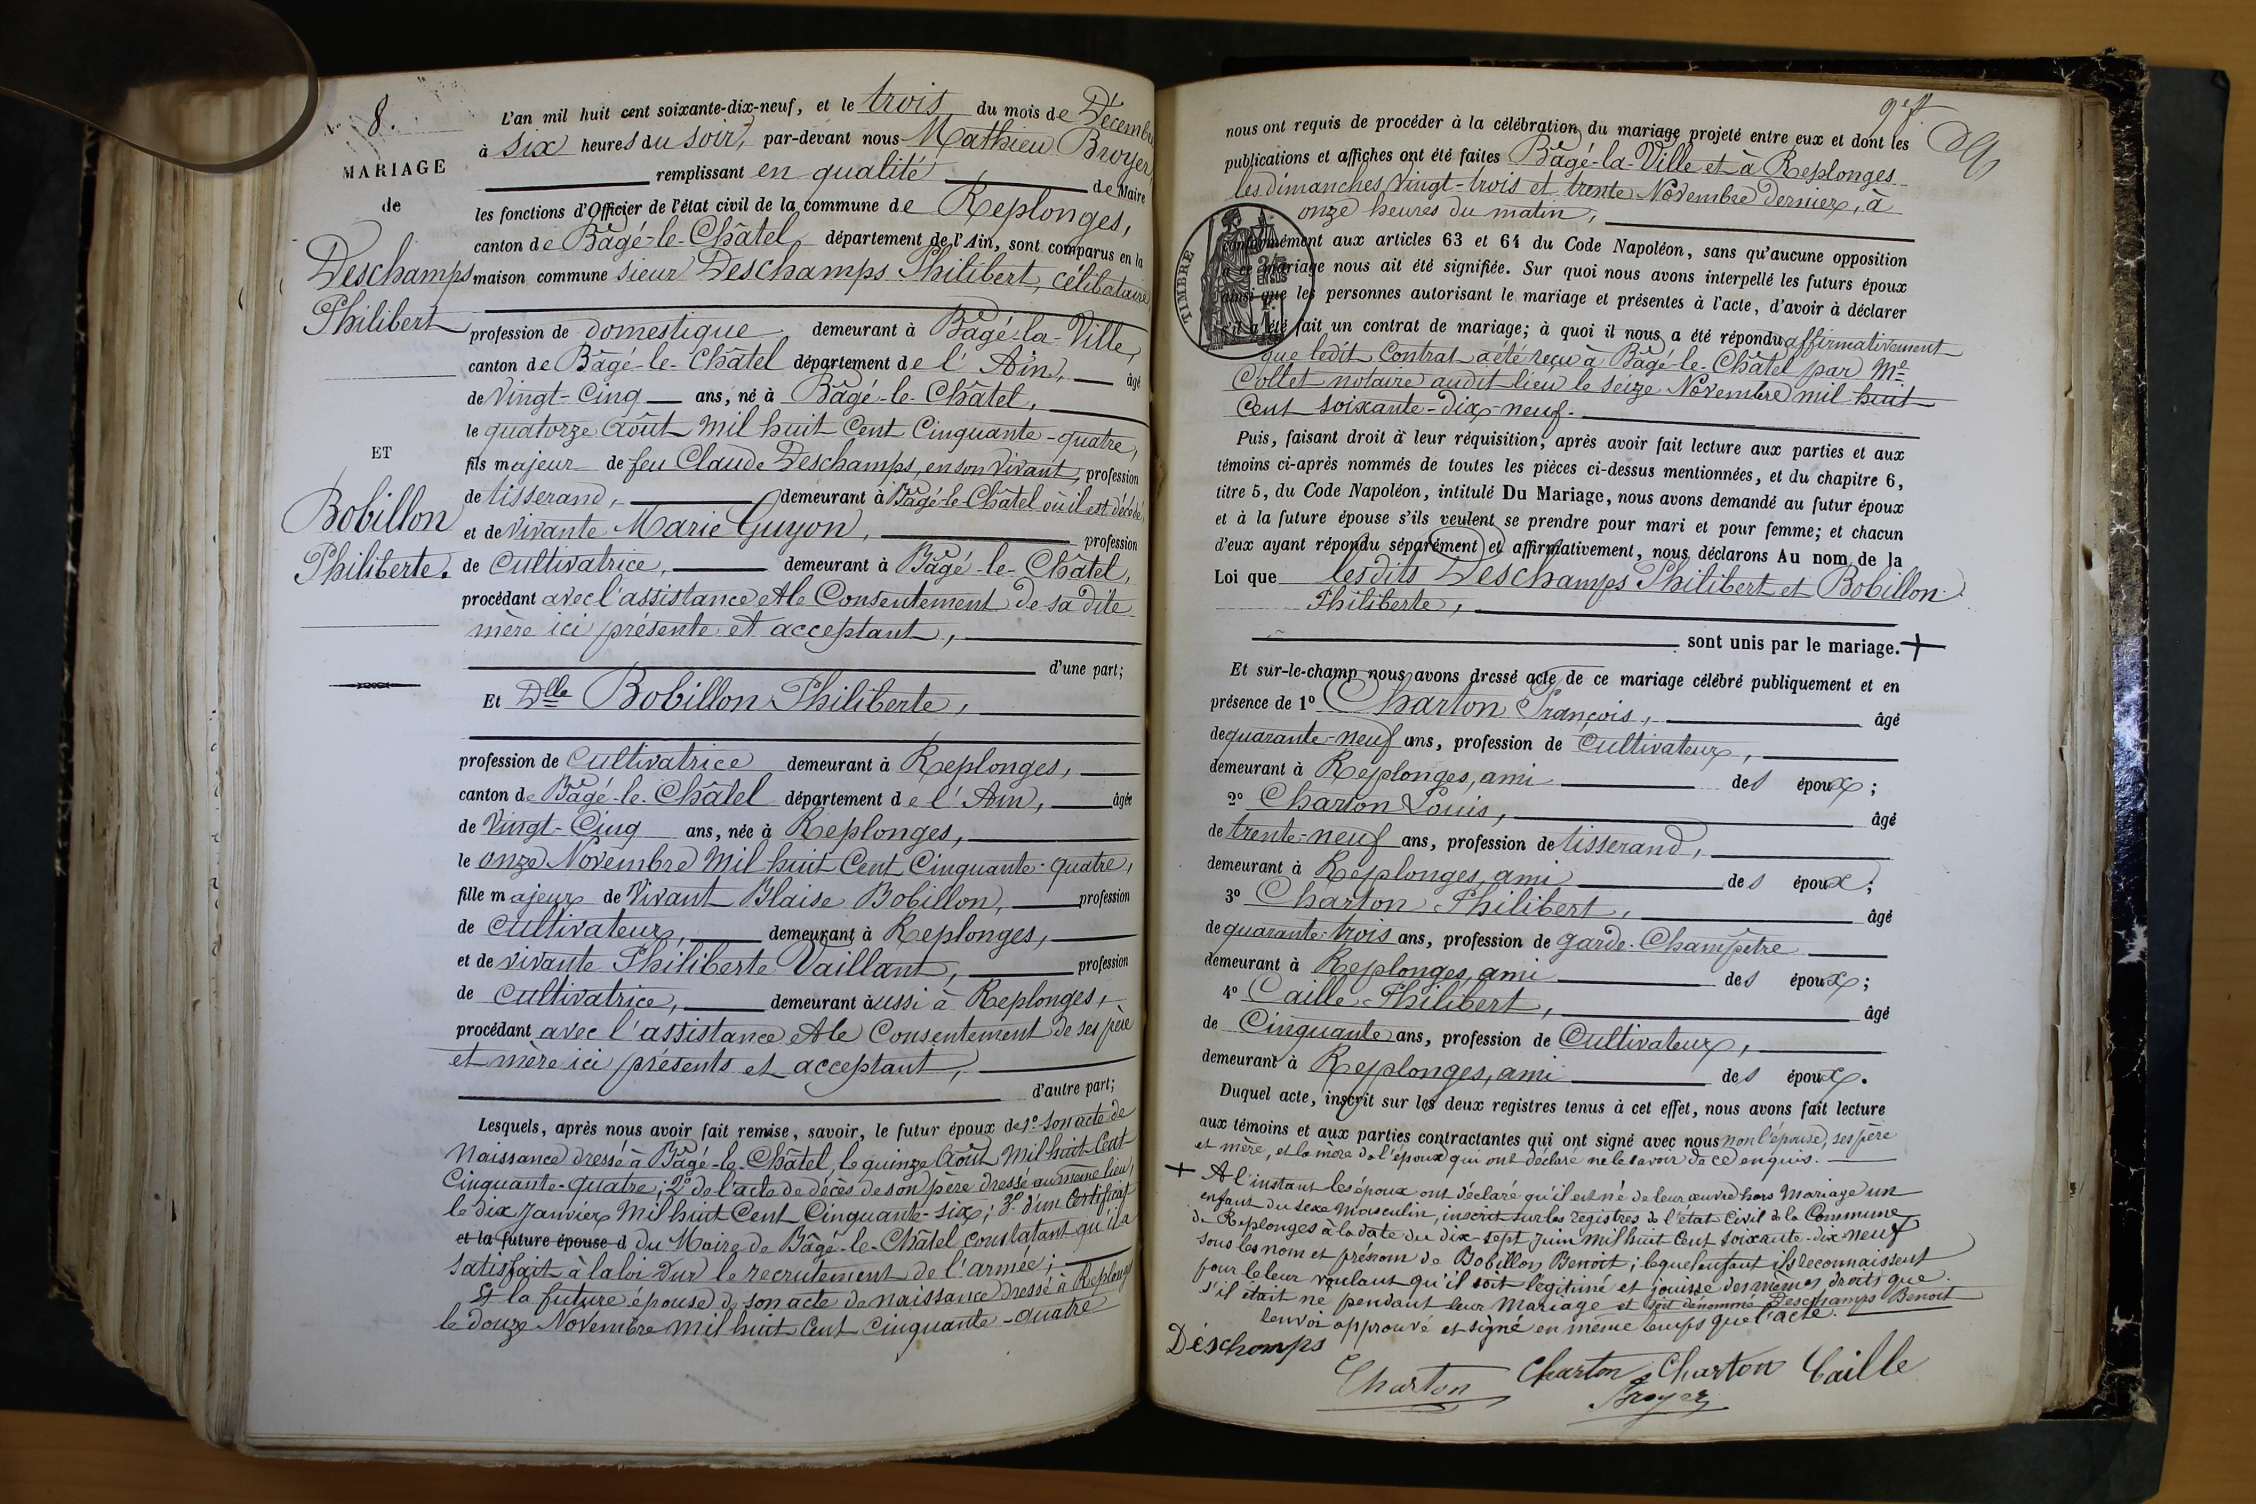 8.
MARIAGE
de
Deschamps
Philibert
ET
Bobillon
Philiberte.
L'an mil huit cent soixante-dix-neuf, et le trois du mois de Décembre
à six heures du soir, par-devant nous Mathieu Broyer,
remplissant en qualité de Maire
les fonctions d'Officier de l'état civil de la commune de Replonges,
canton de Bâgé-le-Châtel département de l'Ain, sont comparus en la
maison commune sieur Deschamps Philibert, célibataire
profession de domestique demeurant à Bâgé-la-Ville,
canton de Bâgé-le-Châtel département de l'Ain, âgé
de Vingt-Cinq ans, né à Bâgé-le-Châtel,
le quatorze Août Mil huit Cent Cinquante-quatre,
fils majeur de feu Claude Deschamps, en son vivant, profession
de tisserand, demeurant à Bâgé-le-Châtel où il est décédé
et de vivante Marie Guyon, profession
de Cultivatrice, demeurant à Bâgé-le-Châtel,
procédant avec l'assistance et le Consentement de sa dite
mère ici présente et acceptant,
d'une part;
Et Dlle Bobillon Philiberte,
profession de Cultivatrice demeurant à Replonges,
canton de Bâgé-le-Châtel département de l'Ain, âgée
de Vingt-Cinq ans, née à Replonges,
le onze Novembre Mil huit Cent Cinquante-quatre,
fille majeure de Vivant Blaise Bobillon, profession
de Cultivateur, demeurant à Replonges,
et de vivante Philiberte Vaillant, profession
de Cultivatrice, demeurant aussi à Replonges,
procédant avec l'assistance et le Consentement de ses père
et mère ici présents et acceptant,
d'autre part;
Lesquels, après nous avoir fait remise, savoir, le futur époux de 1° son acte de
Naissance dressé à Bâgé-le-Châtel, le quinze Août Mil huit Cent
Cinquante-quatre; 2° de l'acte de décès de son père dressé au même lieu,
le dix Janvier Mil huit Cent Cinquante-six; 3° d'un Certificat
et la future épouse d du Maire de Bâgé-le-Châtel constatant qu'il a
satisfait à la loi sur le recrutement de l'armée;
Et la future épouse de son acte de naissance dressé à Replonges
le douze Novembre Mil huit Cent Cinquante-quatre
nous ont requis de procéder à la célébration du mariage projeté entre eux et dont les
publications et affiches ont été faites Bâgé-la-Ville et à Replonges
les dimanches vingt-trois et trente Novembre dernier, à
onze heures du matin,
TIMBRE
conformément aux articles 63 et 64 du Code Napoléon, sans qu'aucune opposition
à ce mariage nous ait été signifiée. Sur quoi nous avons interpellé les futurs époux
ainsi que les personnes autorisant le mariage et présentes à l'acte, d'avoir à déclarer
s'il a été fait un contrat de mariage; à quoi il nous a été répondu affirmativement
que ledit Contrat a été reçu à Bâgé-le-Châtel par Me
Collet notaire audit lieu le seize Novembre mil huit
Cent soixante-dix-neuf.
Puis, faisant droit à leur réquisition, après avoir fait lecture aux parties et aux
témoins ci-après nommés de toutes les pièces ci-dessus mentionnées, et du chapitre 6,
titre 5, du Code Napoléon, intitulé Du Mariage, nous avons demandé au futur époux
et à la future épouse s'ils veulent se prendre pour mari et pour femme; et chacun
d'eux ayant répondu séparément et affirmativement, nous déclarons Au nom de la
Loi que lesdits Deschamps Philibert et Bobillon
Philiberte,
sont unis par le mariage. +
Et sur-le-champ nous avons dressé acte de ce mariage célébré publiquement et en
présence de 1° Charton François, âgé
de quarante-neuf ans, profession de Cultivateur,
demeurant à Replonges, ami des époux;
2° Charton Louis, âgé
de trente-neuf ans, profession de tisserand,
demeurant à Replonges, ami des époux;
3° Charton Philibert, âgé
de quarante-trois ans, profession de garde-Champêtre
demeurant à Replonges, ami des époux;
4° Caille Philibert, âgé
de Cinquante ans, profession de Cultivateur,
demeurant à Replonges, ami des époux.
Duquel acte, inscrit sur les deux registres tenus à cet effet, nous avons fait lecture
aux témoins et aux parties contractantes qui ont signé avec nous non l'épouse, ses père
et mère, et la mère de l'époux qui ont déclaré ne le savoir de ce enquis.
+ A l'instant les époux ont déclaré qu'il est né de leur œuvre hors Mariage un
enfant du sexe Masculin, inscrit sur les registres de l'état Civil de la Commune
de Replonges à la date du dix-sept Juin Mil huit Cent soixante-dix-neuf
sous les nom et prénom de Bobillon Benoit; lequel enfant ils reconnaissent
pour le leur voulant qu'il soit légitimé et jouisse des mêmes droits que
s'il était né pendant leur Mariage et soit dénommé Deschamps Benoit
renvoi approuvé et signé en même temps que l'acte.
Deschomps
Charton Charton Charton Caille
Broyer